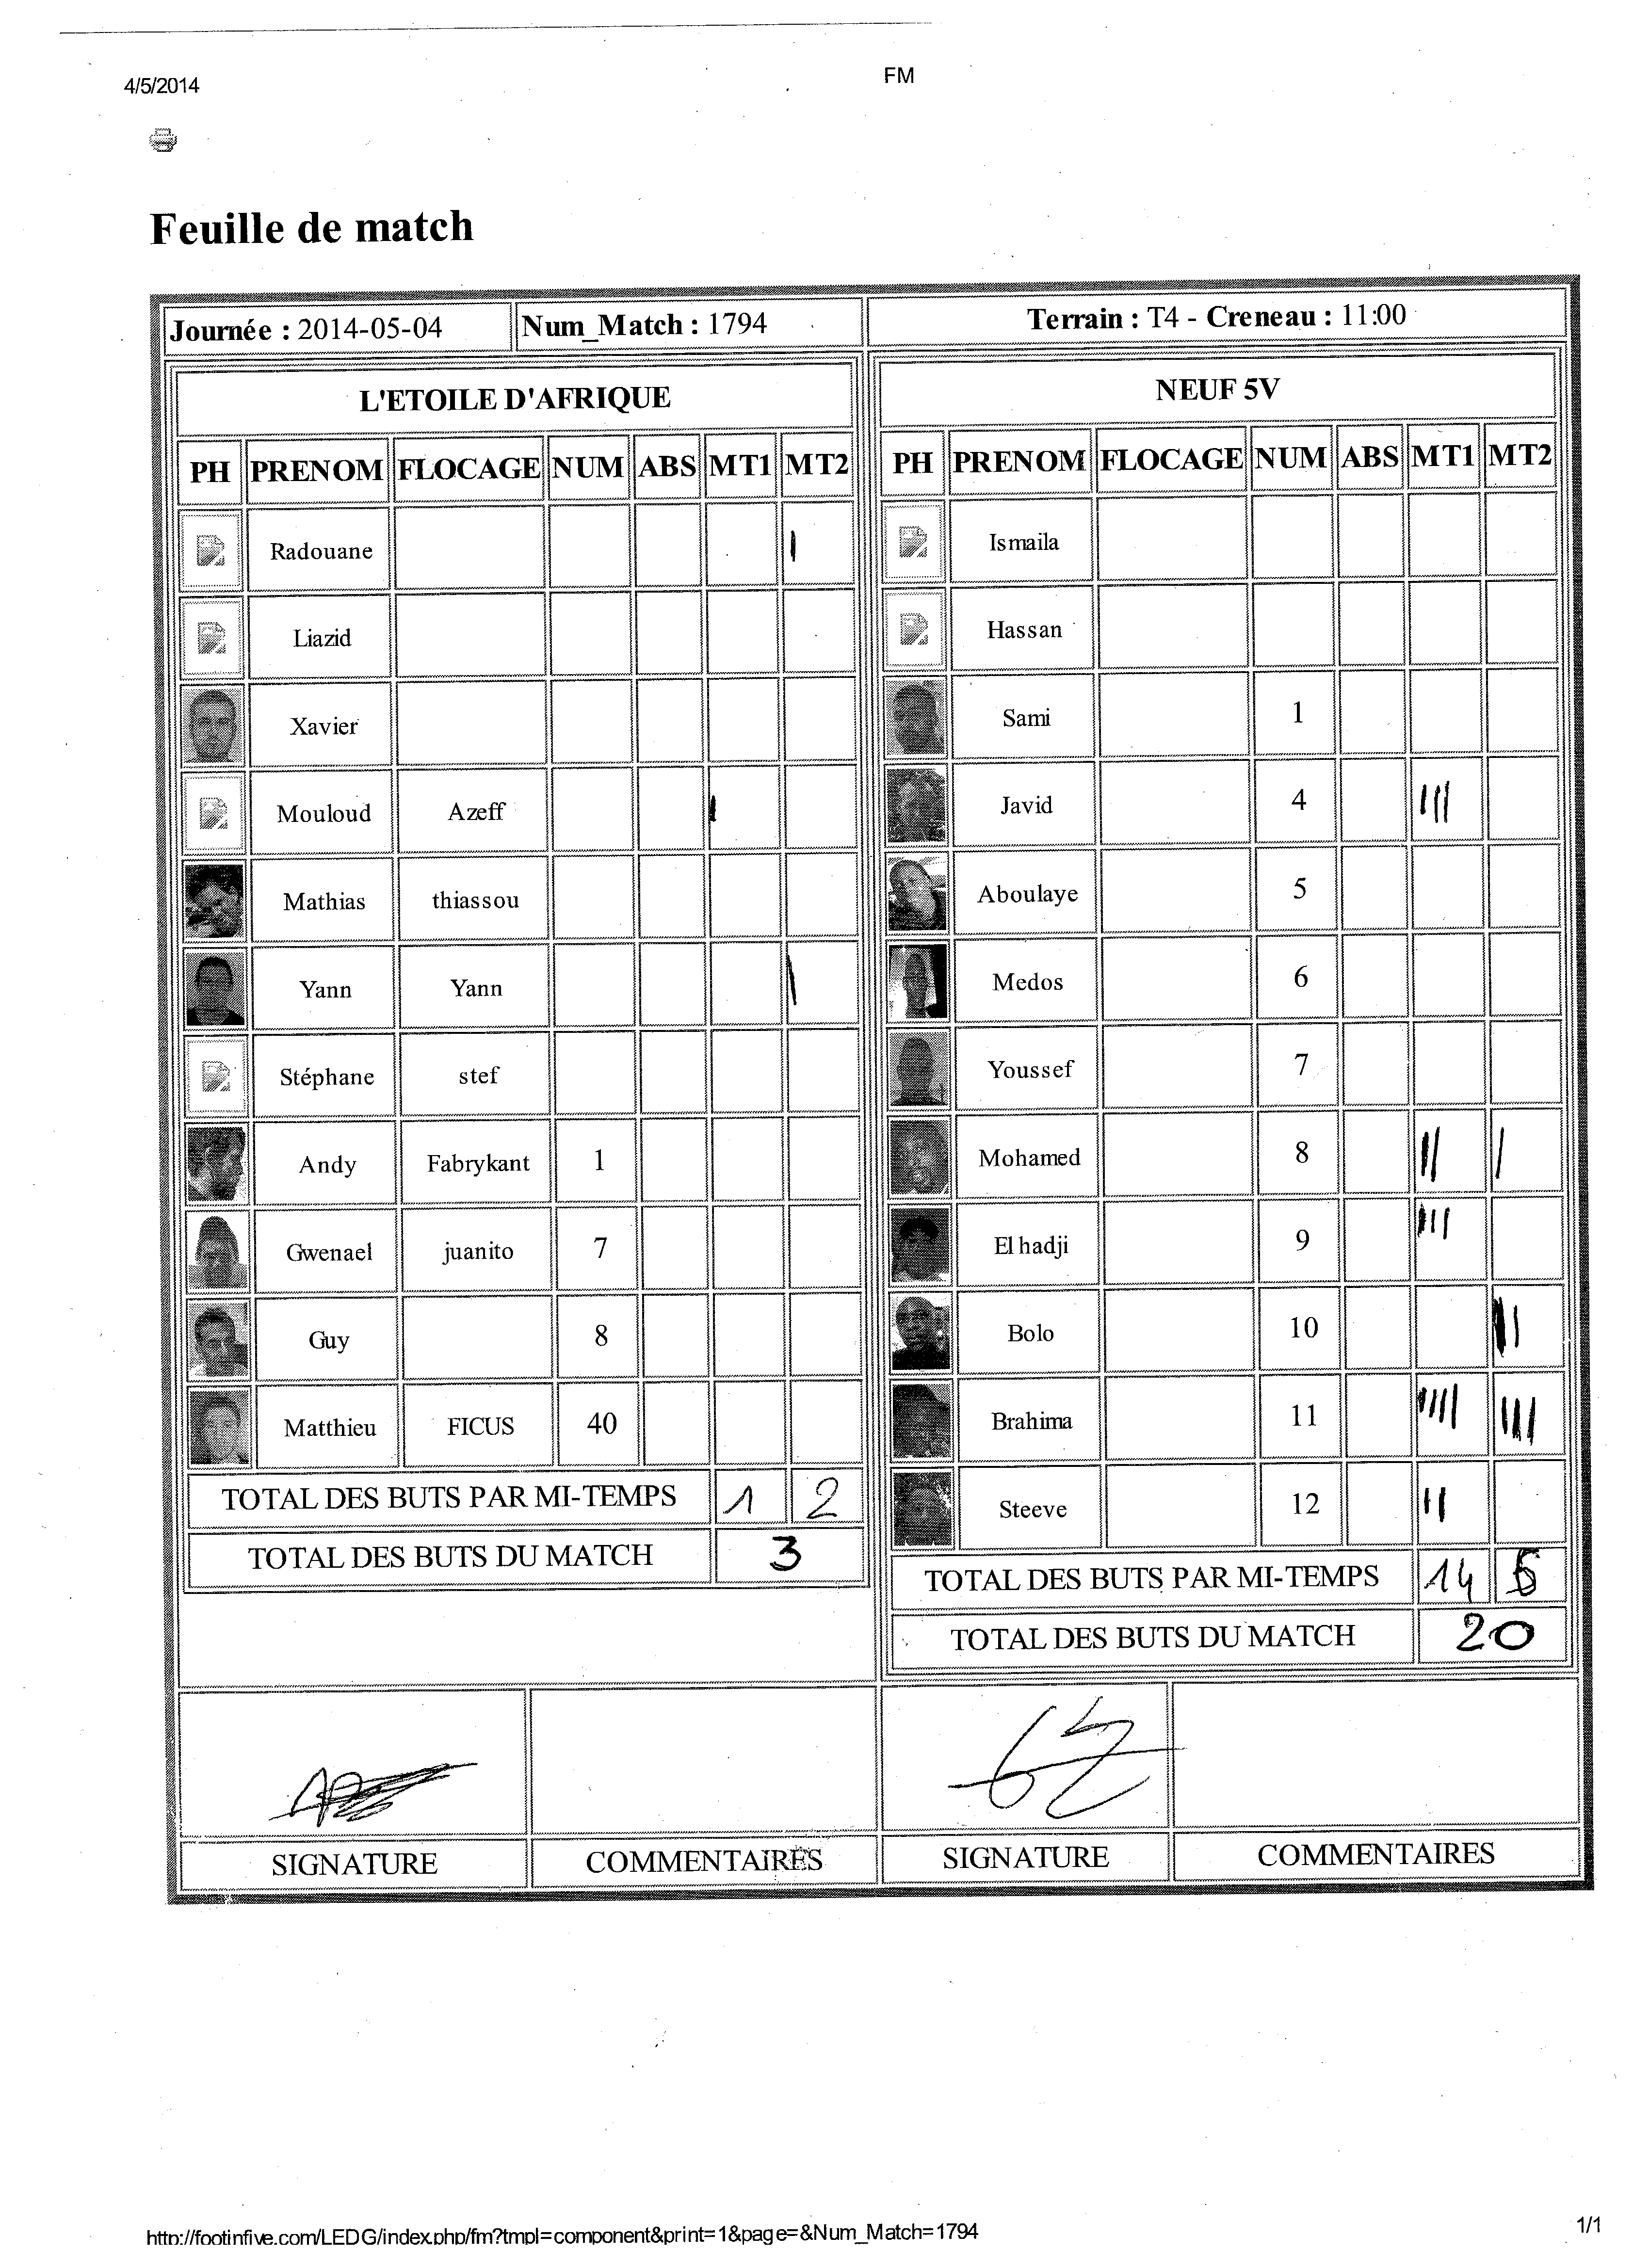 4/5/2014 FM
Feuille de match
Journée : 2014-05-04 Num_Match : 1794 Terrain : T4 - Creneau : 11:00
L'ETOILE D'AFRIQUE
PH PRENOM FLOCAGE NUM ABS MT1 MT2
Radouane |
Liazid
Xavier
Mouloud Azeff |
Mathias thiassou
Yann Yann |
Stéphane stef
Andy Fabrykant 1
Gwenael juanito 7
Guy 8
Matthieu FICUS 40
TOTAL DES BUTS PAR MI-TEMPS 1 2
TOTAL DES BUTS DU MATCH 3
NEUF 5V
PH PRENOM FLOCAGE NUM ABS MT1 MT2
Ismaila
Hassan
Sami 1
Javid 4 |||
Aboulaye 5
Medos 6
Youssef 7
Mohamed 8 || |
El hadji 9 |||
Bolo 10 ||
Brahima 11 |||| |||
Steeve 12 ||
TOTAL DES BUTS PAR MI-TEMPS 14 6
TOTAL DES BUTS DU MATCH 20
SIGNATURE COMMENTAIRES SIGNATURE COMMENTAIRES
http://footinfive.com/LEDG/index.php/fm?tmpl=component&print=1&page=&Num_Match=1794 1/1